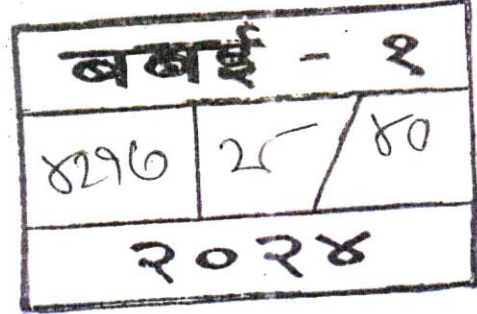 बबई - १
४२१७ २८ / ४०
२०२४